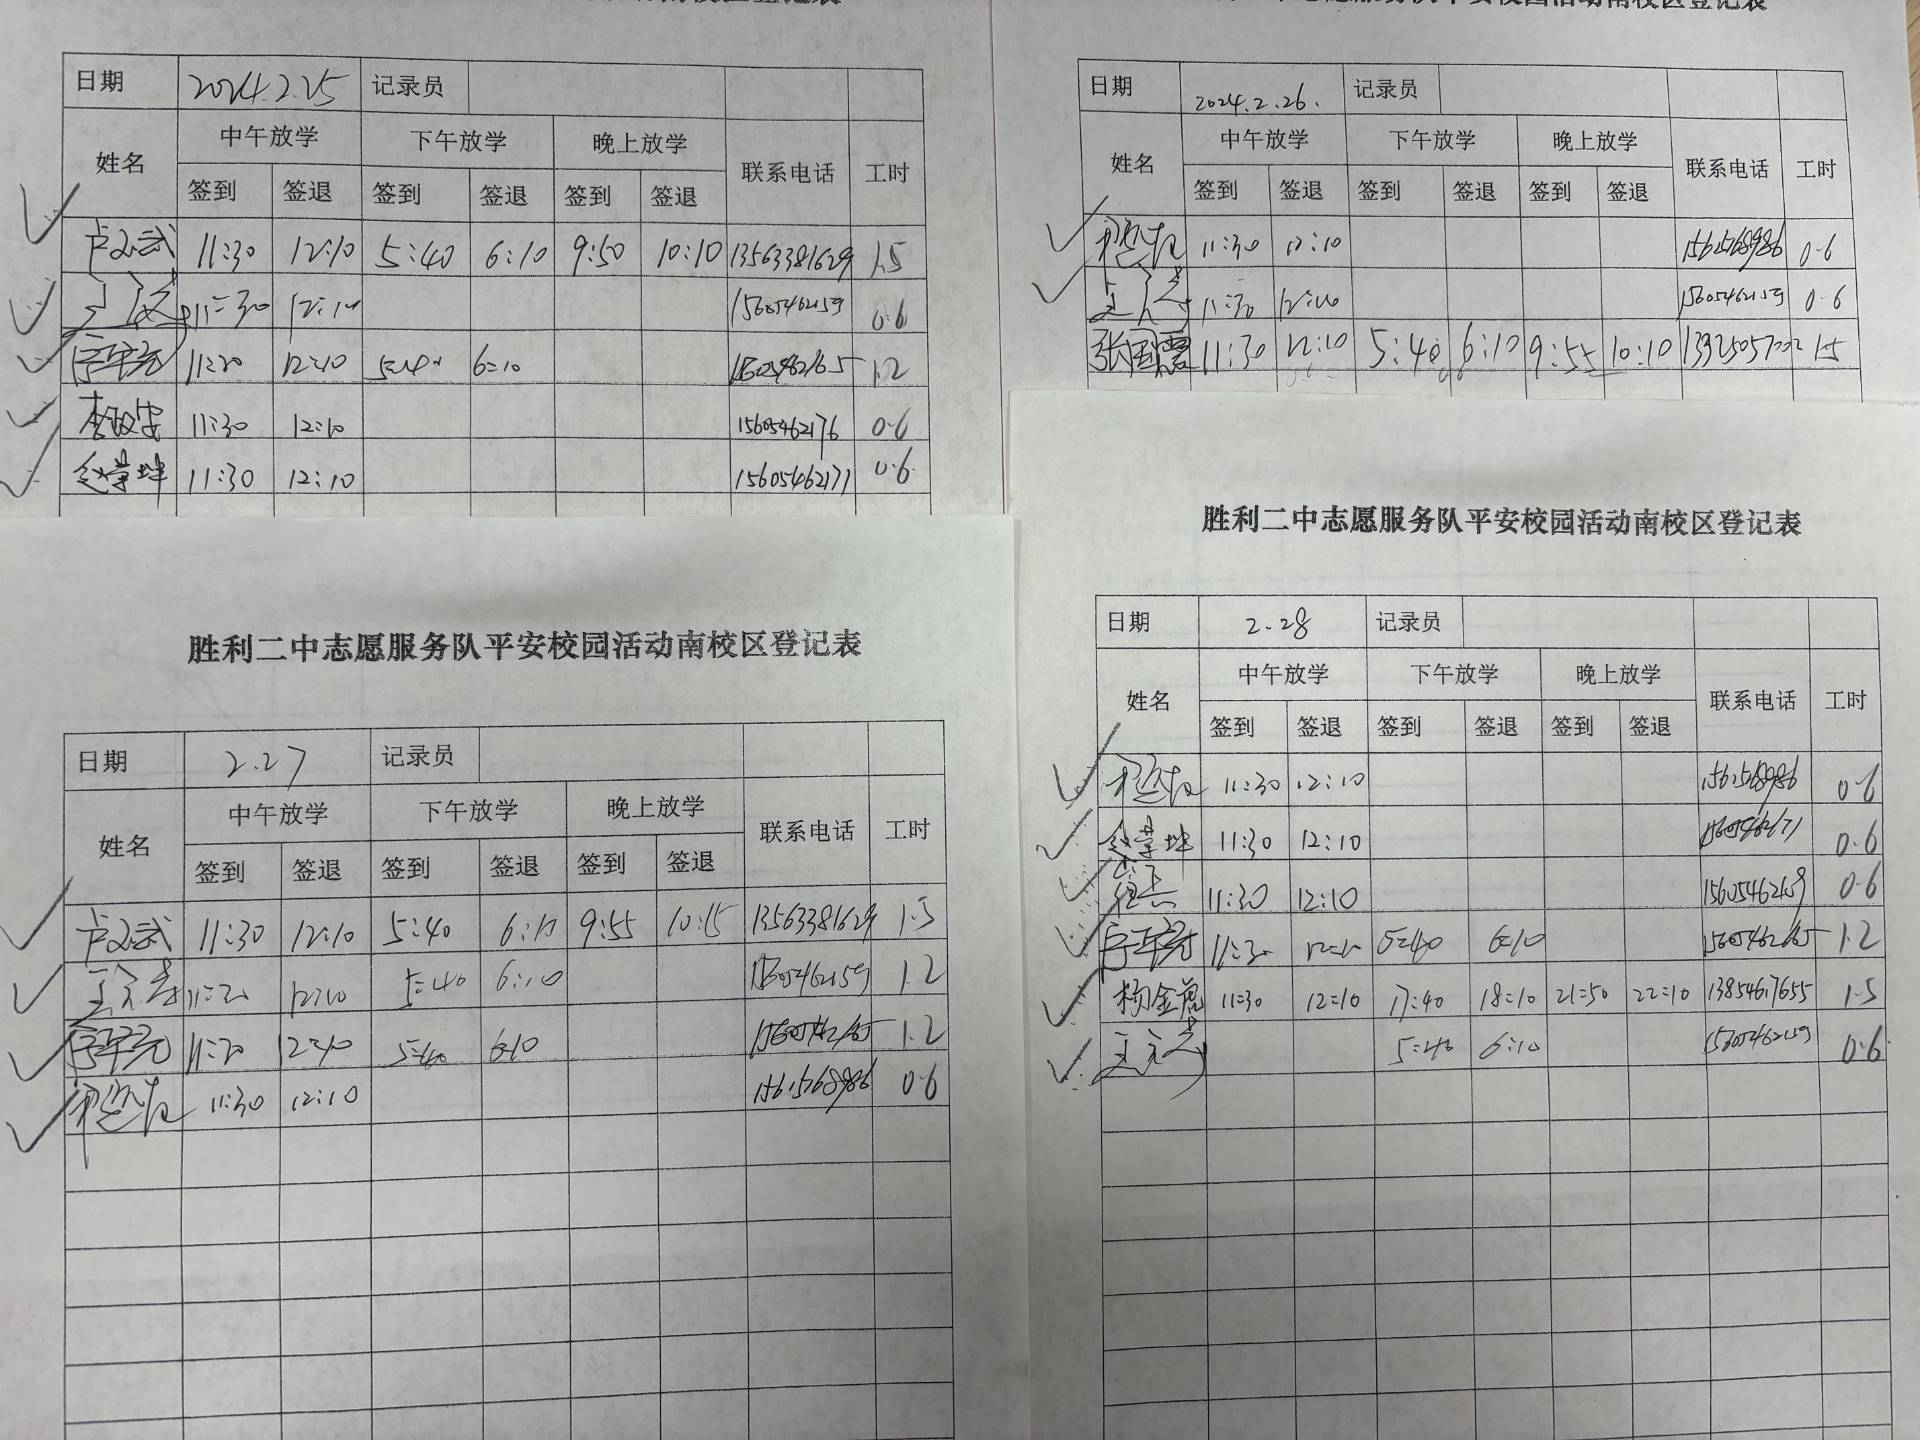 日期 2024.2.25 记录员
姓名 中午放学 下午放学 晚上放学 联系电话 工时
签到 签退 签到 签退 签到 签退
11:30 12:10 5:40 6:10 9:50 10:10 13563381629 1.5
11:30 12:10 15605462159 0.6
11:30 12:10 5:40 6:10 1.2
李政安 11:30 12:10 15605462176 0.6
11:30 12:10 15605462171 0.6
日期 2024.2.26. 记录员
姓名 中午放学 下午放学 晚上放学 联系电话 工时
签到 签退 签到 签退 签到 签退
11:30 12:10 0.6
11:30 12:10 15605462159 0.6
张国震 11:30 12:10 5:40 6:10 9:55 10:10 1.5
胜利二中志愿服务队平安校园活动南校区登记表
日期 2.27 记录员
姓名 中午放学 下午放学 晚上放学 联系电话 工时
签到 签退 签到 签退 签到 签退
11:30 12:10 5:40 6:10 9:55 10:15 13563381629 1.5
12:10 5:40 6:10 15605462159 1.2
5:40 6:10 1.2
11:30 12:10 0.6
胜利二中志愿服务队平安校园活动南校区登记表
日期 2.28 记录员
姓名 中午放学 下午放学 晚上放学 联系电话 工时
签到 签退 签到 签退 签到 签退
11:30 12:10 0.6
11:30 12:10 15605462171 0.6
11:30 12:10 0.6
11:30 5:40 6:10 1.2
杨金虎 11:30 12:10 17:40 18:10 21:50 22:10 13854617655 1.5
5:40 6:10 15605462159 0.6